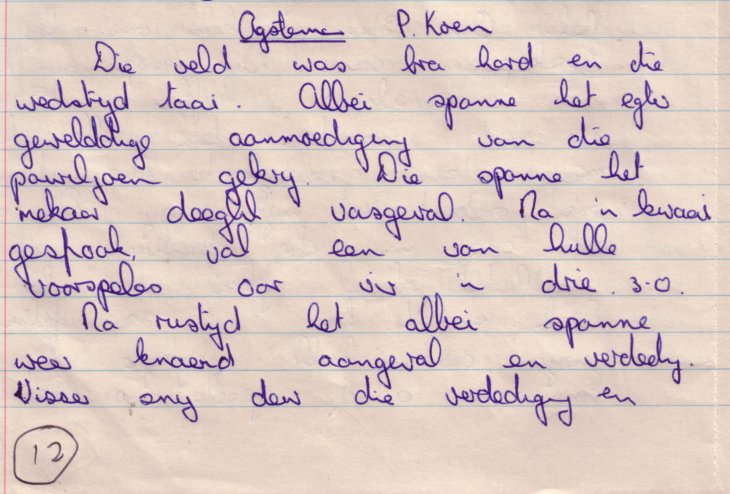 Agsteman P. Koen
Die veld was bra hard en die
wedstryd taai. Albei spanne het egter
geweldige aanmoediging van die
pawiljoen gekry. Die spanne het
mekaar deeglik vasgeval. Na 'n kwaai
gespook, val een van hulle
voorspelers oor vir 'n drie. 3-0.
Na rustyd het albei spanne
weer knaend aangeval en verdedig.
Visser sny deur die verdediging en
12